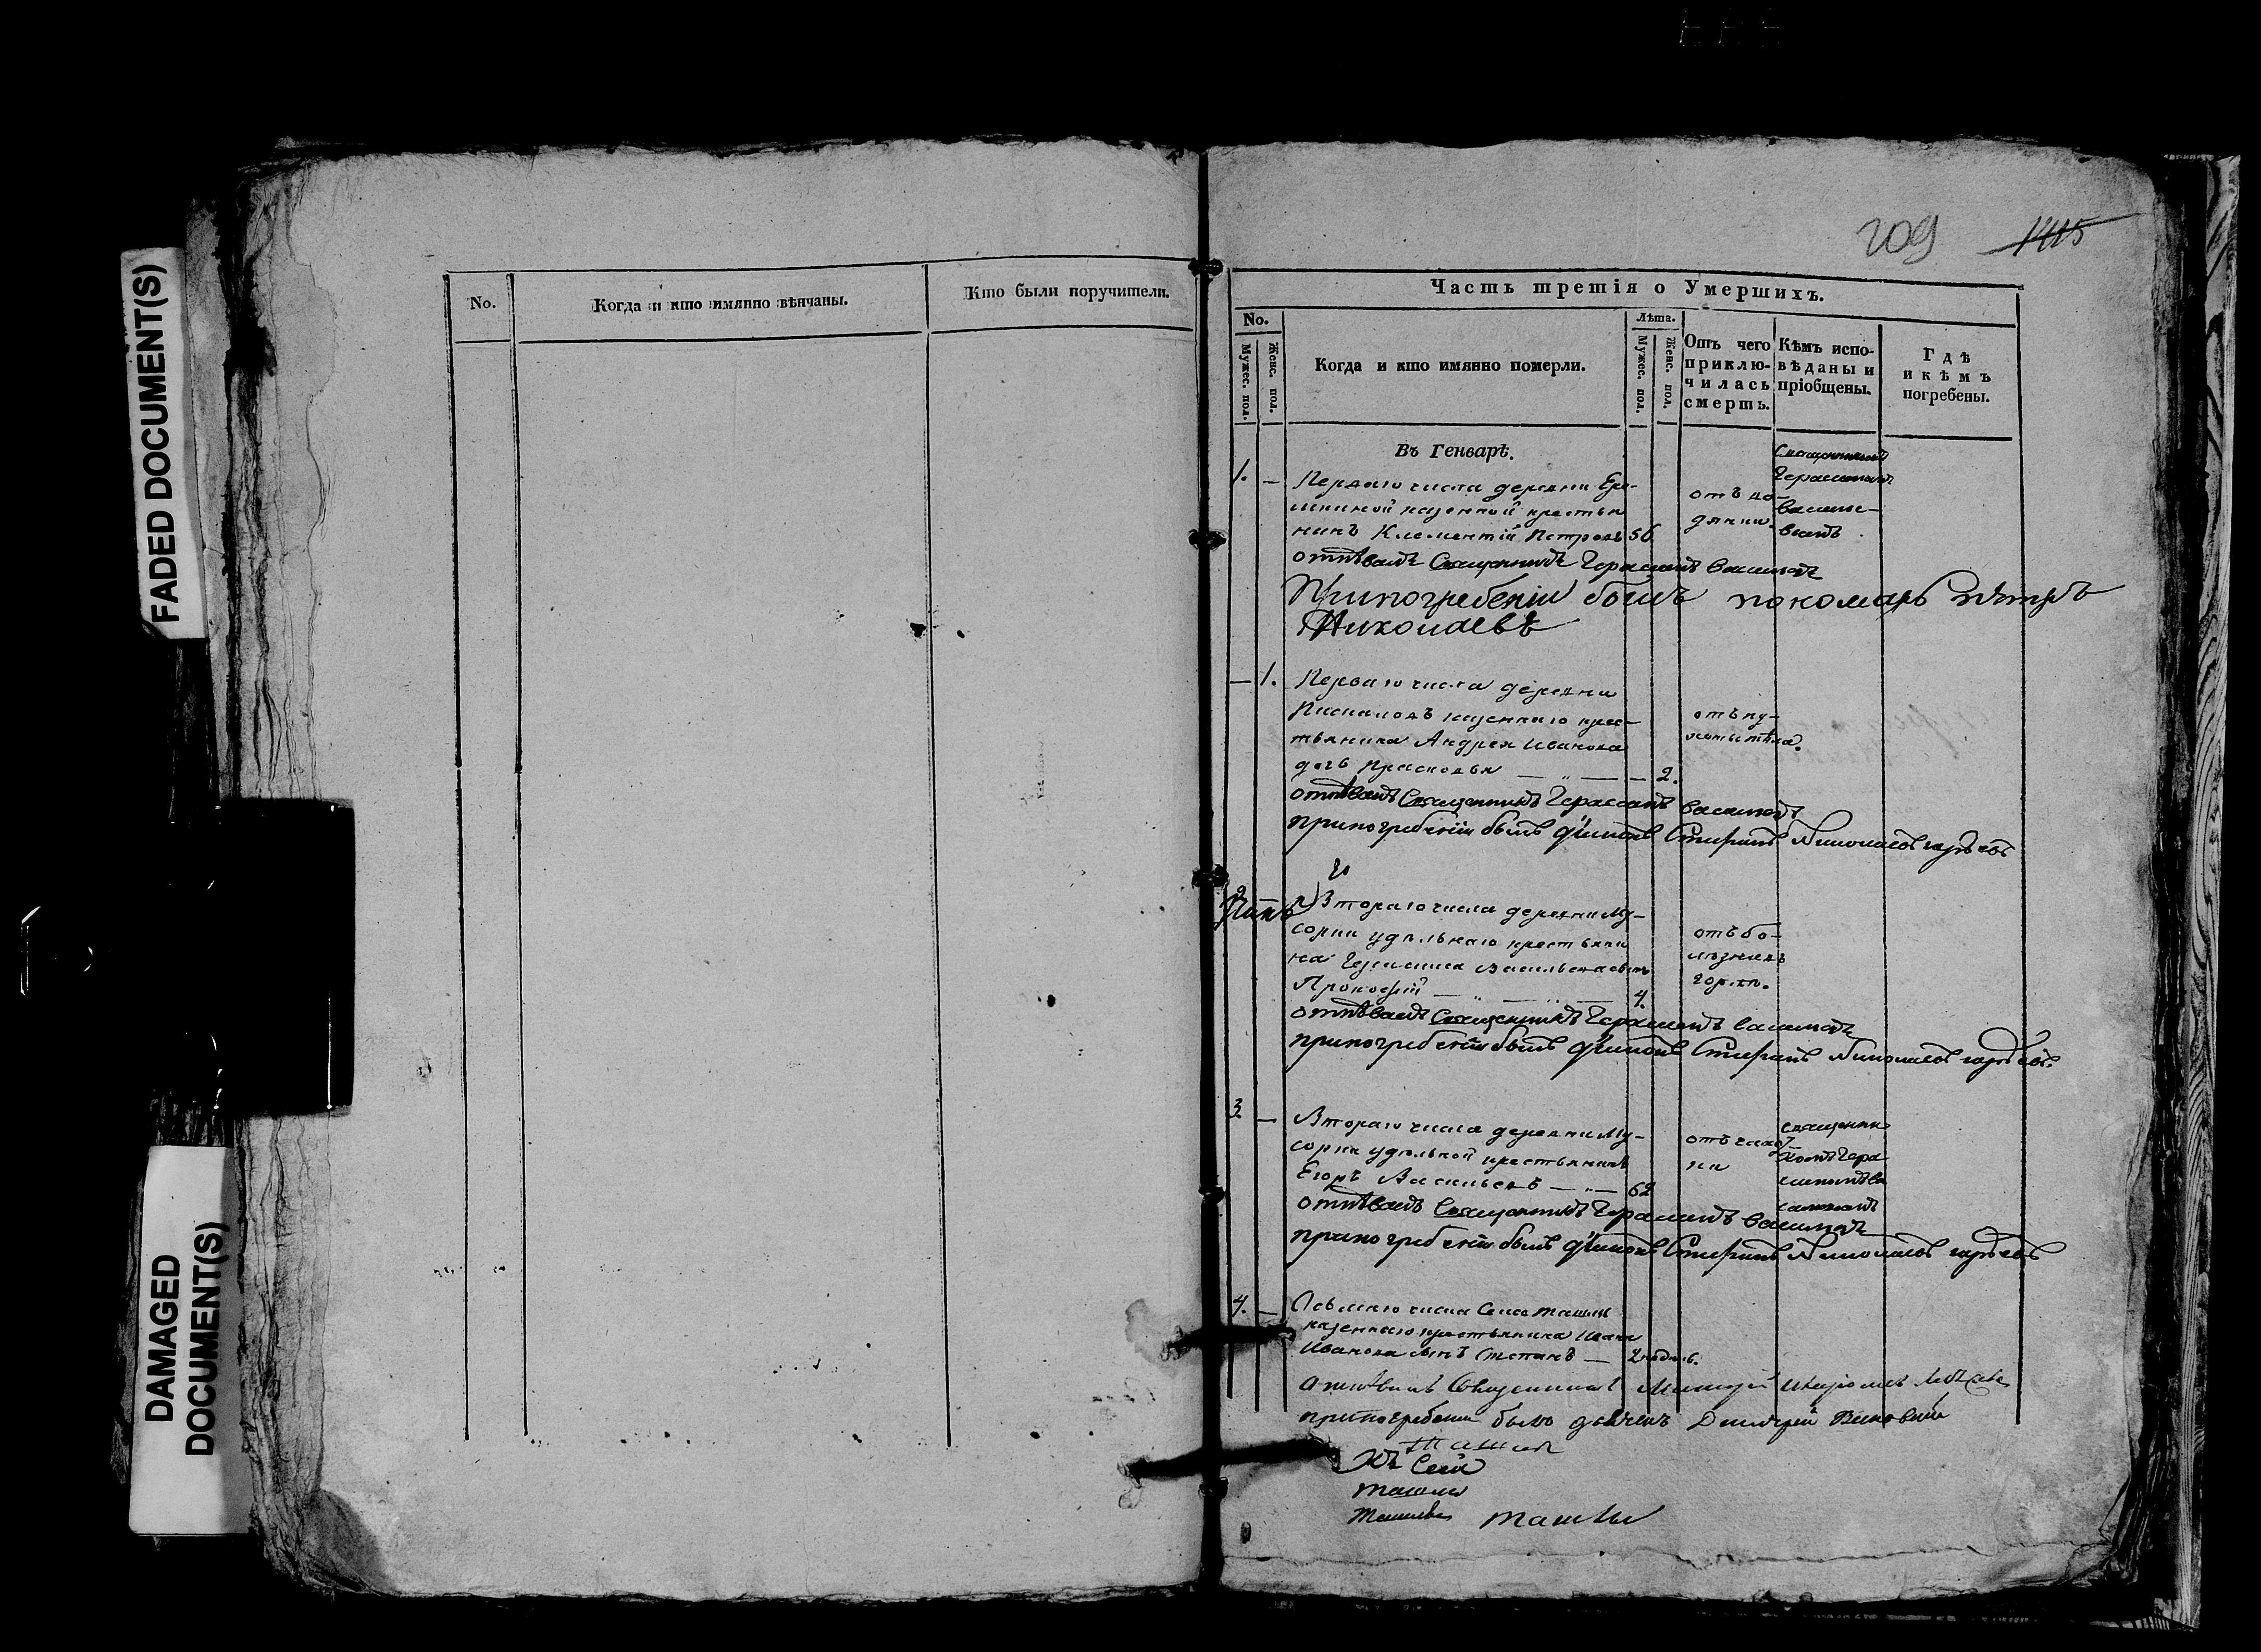 FADED DOCUMENT(S)
DAMAGED
DOCUMENT(S)
No.
Когда и кто имянно вѣнчаны.
Кто были поручители.
209 1415
Часть третія о Умершихъ.
No.
Мужес. пол.
Женс. пол.
Когда и кто имянно померли.
Лѣта.
Мужес. пол.
Женс. пол.
Отъ чего
приклю-
чилась
смерть.
Кѣмъ испо-
вѣданы и
пріобщены.
Гдѣ
и кѣмъ
погребены.
Въ Генварѣ.
1. —
Перваго числа деревни
казенной крестья
нинъ Климентій Петровъ 56
отъ во-
дянки.
Священникъ
Герасимъ
василье-
вымъ
отпѣвалъ Священникъ Герасимъ васильевъ
При погребеніи былъ пономарь петръ
Николаевъ
— 1.
Перваго числа деревни
казеннаго крес-
тьянина Андрея Иванова
дочь Прасковья — " — — 2.
отпѣвалъ Священникъ Герасимъ васильевъ
при погребеніи былъ дьяконъ Стефанъ Николаевъ
2
Второго числа деревни Му-
сорки удѣльнаго крестьяни
на Герасима Васильева сынъ
Прокофій — " — " — 4.
отъ бо-
лѣзни въ
горлѣ.
отпѣвалъ Священникъ Герасимъ васильевъ
при погребеніи былъ дьяконъ Стефанъ Николаевъ
3. —
Второго числа деревни Му-
сорки удѣльной крестьянинъ
Егоръ Васильевъ — " — 62
отъ чахот-
ки
священни
комъ Гера
симомъ ва
отпѣвалъ Священникъ Герасимъ васильевъ
при погребеніи былъ дьяконъ Стефанъ Николаевъ
4. —
Осьмаго числа Села Ташлы
казеннаго крестьянина Ивана
Иванова сынъ Степанъ — 2 недѣль.
отпѣвалъ Священникъ
при погребеніи былъ дьячекъ Дмитрій
Ташла
Села
ташлы
ташлы